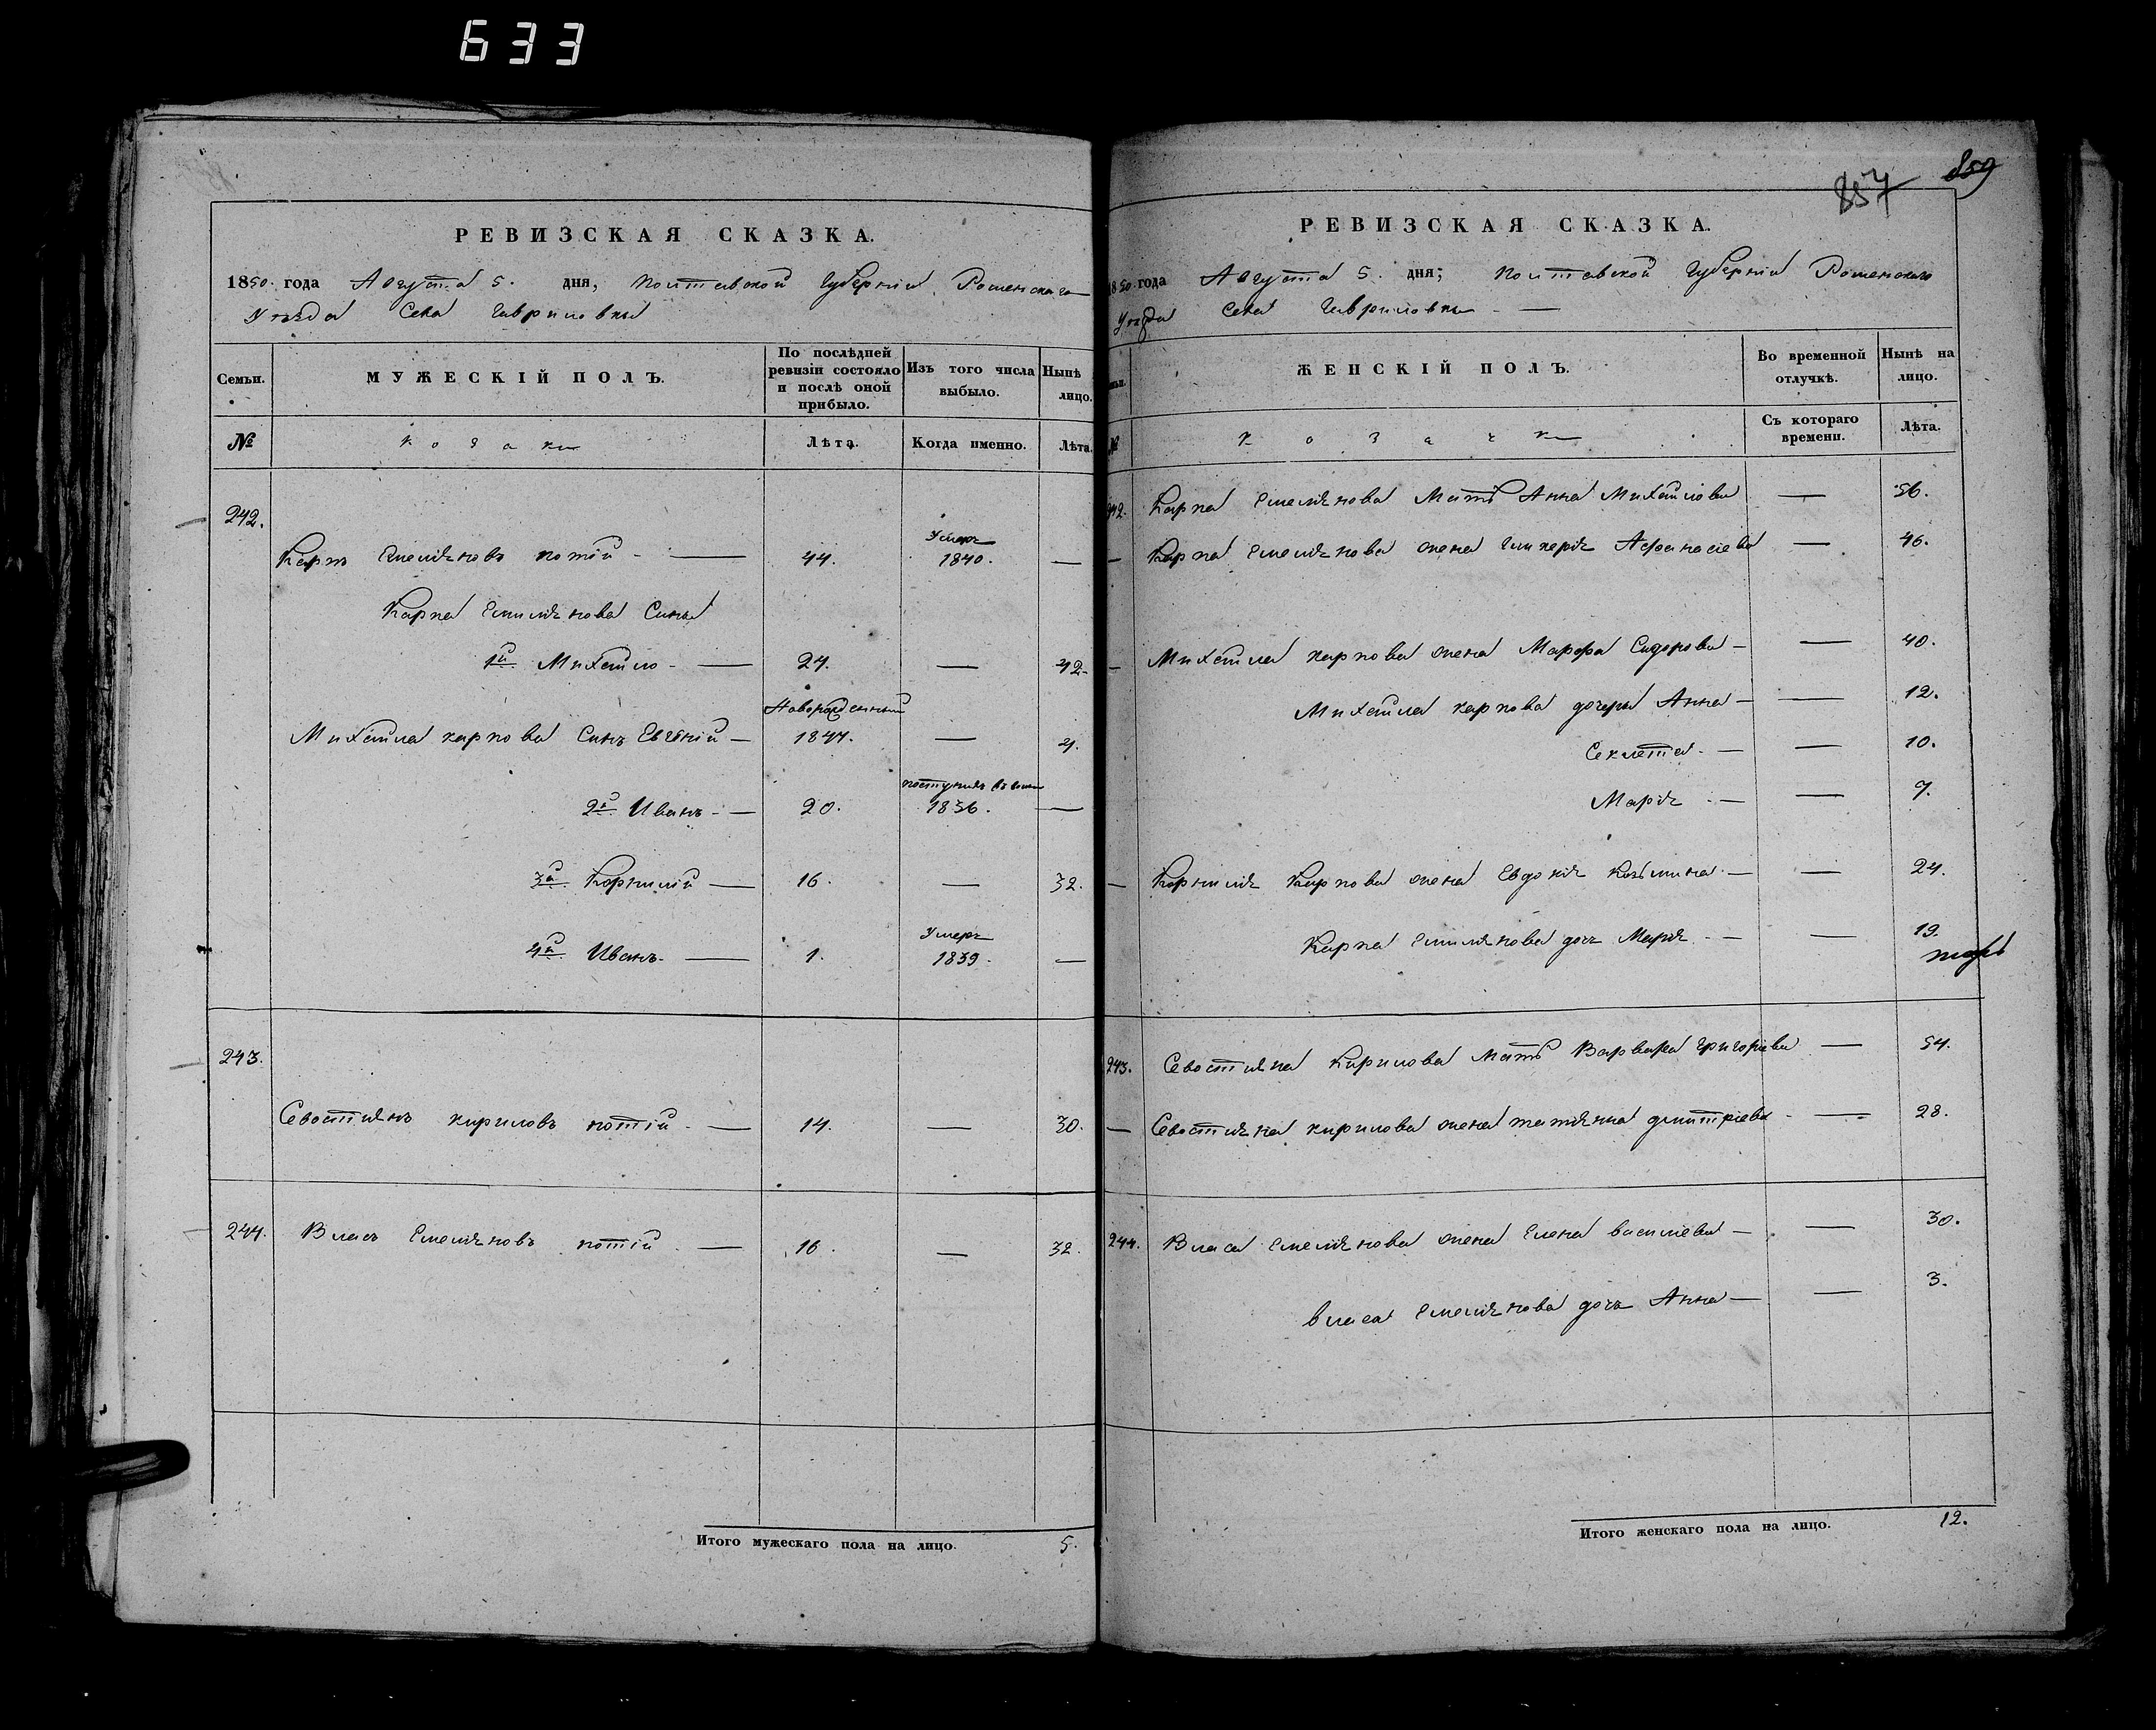 633
РЕВИЗСКАЯ СКАЗКА.
1850 года Августа 5. дня, Полтавской Губерніи Роменскаго
Уезда Села Гавриловки
Семьи. МУЖЕСКІЙ ПОЛЪ. По послѣдней ревизіи состояло и послѣ оной прибыло. Изъ того числа выбыло. Нынѣ лицо.
№ козаки Лѣта. Когда именно. Лѣта.
242.
Умеръ
Карпъ Емеляновъ потій 44. 1840. —
Карпа Емилянова Сины
1й Михайло 24. — 42
Наворожденный
Михайла карпова Синъ Евгеній 1844. — 4.
поступилъ въ
2й Иванъ 20. 1836. —
3й Корнилій 16. — 32.
Умеръ
4й Иванъ 1. 1839. —
243.
Севостиянъ кириловъ потій 14. — 30.
244. Власъ Емеляновъ потій 16. — 32.
Итого мужескаго пола на лицо. 5.
857 859
РЕВИЗСКАЯ СКАЗКА.
1850 года Августа 5. дня; Полтавской Губерніи Роменскаго
Уезда Села Гавриловки
ЖЕНСКІЙ ПОЛЪ. Во временной отлучкѣ. Нынѣ на лицо.
№ козачки Съ котораго времени. Лѣта.
242. Карпа Емелянова Мать Анна Михайлова — 56.
— Карпа Емелянова жена Гликерія Афанасіева — 46.
— Михайла карпова жена Марфа Сидорова — 40.
Михайла карпова дочери Анна — 12.
Секлета — 10.
Марія — 7.
— Корнилія Карпова жена Евдокія Козьмина — 24.
Карпа Емилянова дочь Марія — 19.
243. Севостияна Кирилова Мать Варвара григоріева — 54.
— Севостияна кирилова жена татияна дмитріева — 28.
244. Власа Емелянова жена Елена василіева — 30.
власа Емелянова дочь Анна — 3.
Итого женскаго пола на лицо. 12.